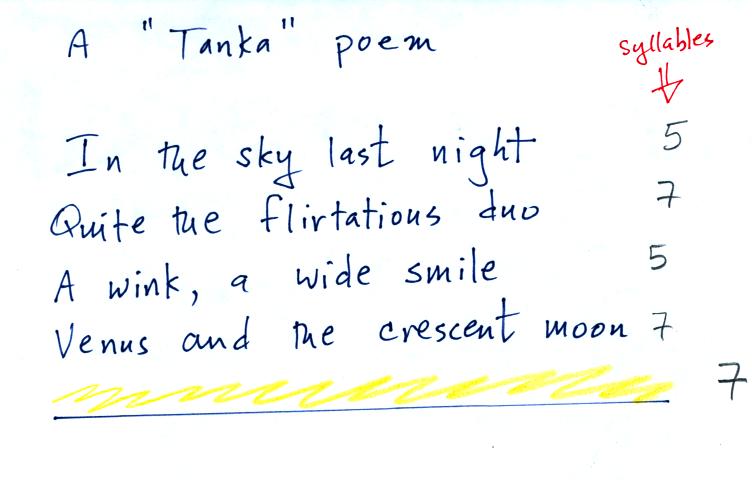 A "Tanka" poem
syllables
In the sky last night 5
Quite the flirtatious duo 7
A wink, a wide smile 5
Venus and the crescent moon 7
7